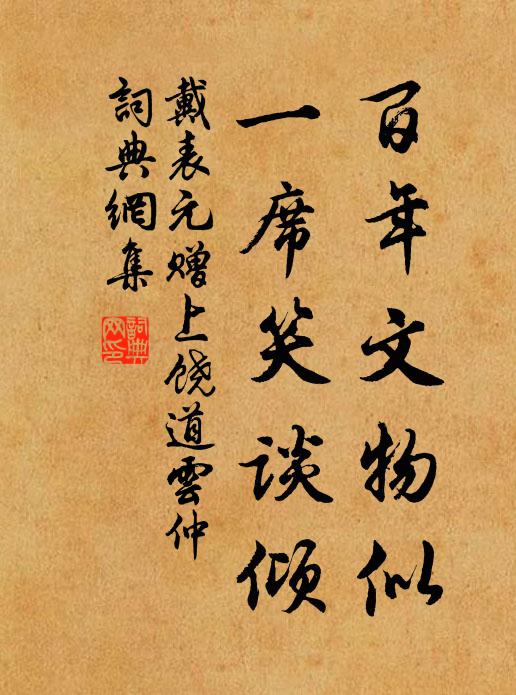 百年文物似
一席笑谈倾
戴表元赠上饶道雲仲
詞典網集
詞典
网印